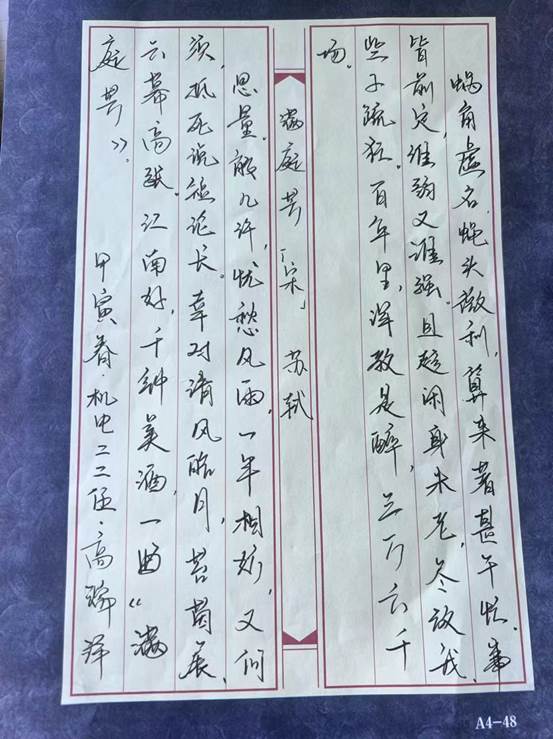 蜗角虚名，蝇头微利，算来著甚干忙。事
皆前定，谁弱又谁强。且趁闲身未老，尽放我
些子疏狂。百年里，浑教是醉，三万六千
场。
满庭芳「宋」 苏轼
思量。能几许，忧愁风雨，一年相妨，又何
须抵死说短论长。幸对清风皓月，苔茵展，
云幕高张。江南好，千钟美酒，一曲《满
庭芳》。
甲寅春·机电二二·高
A4-48